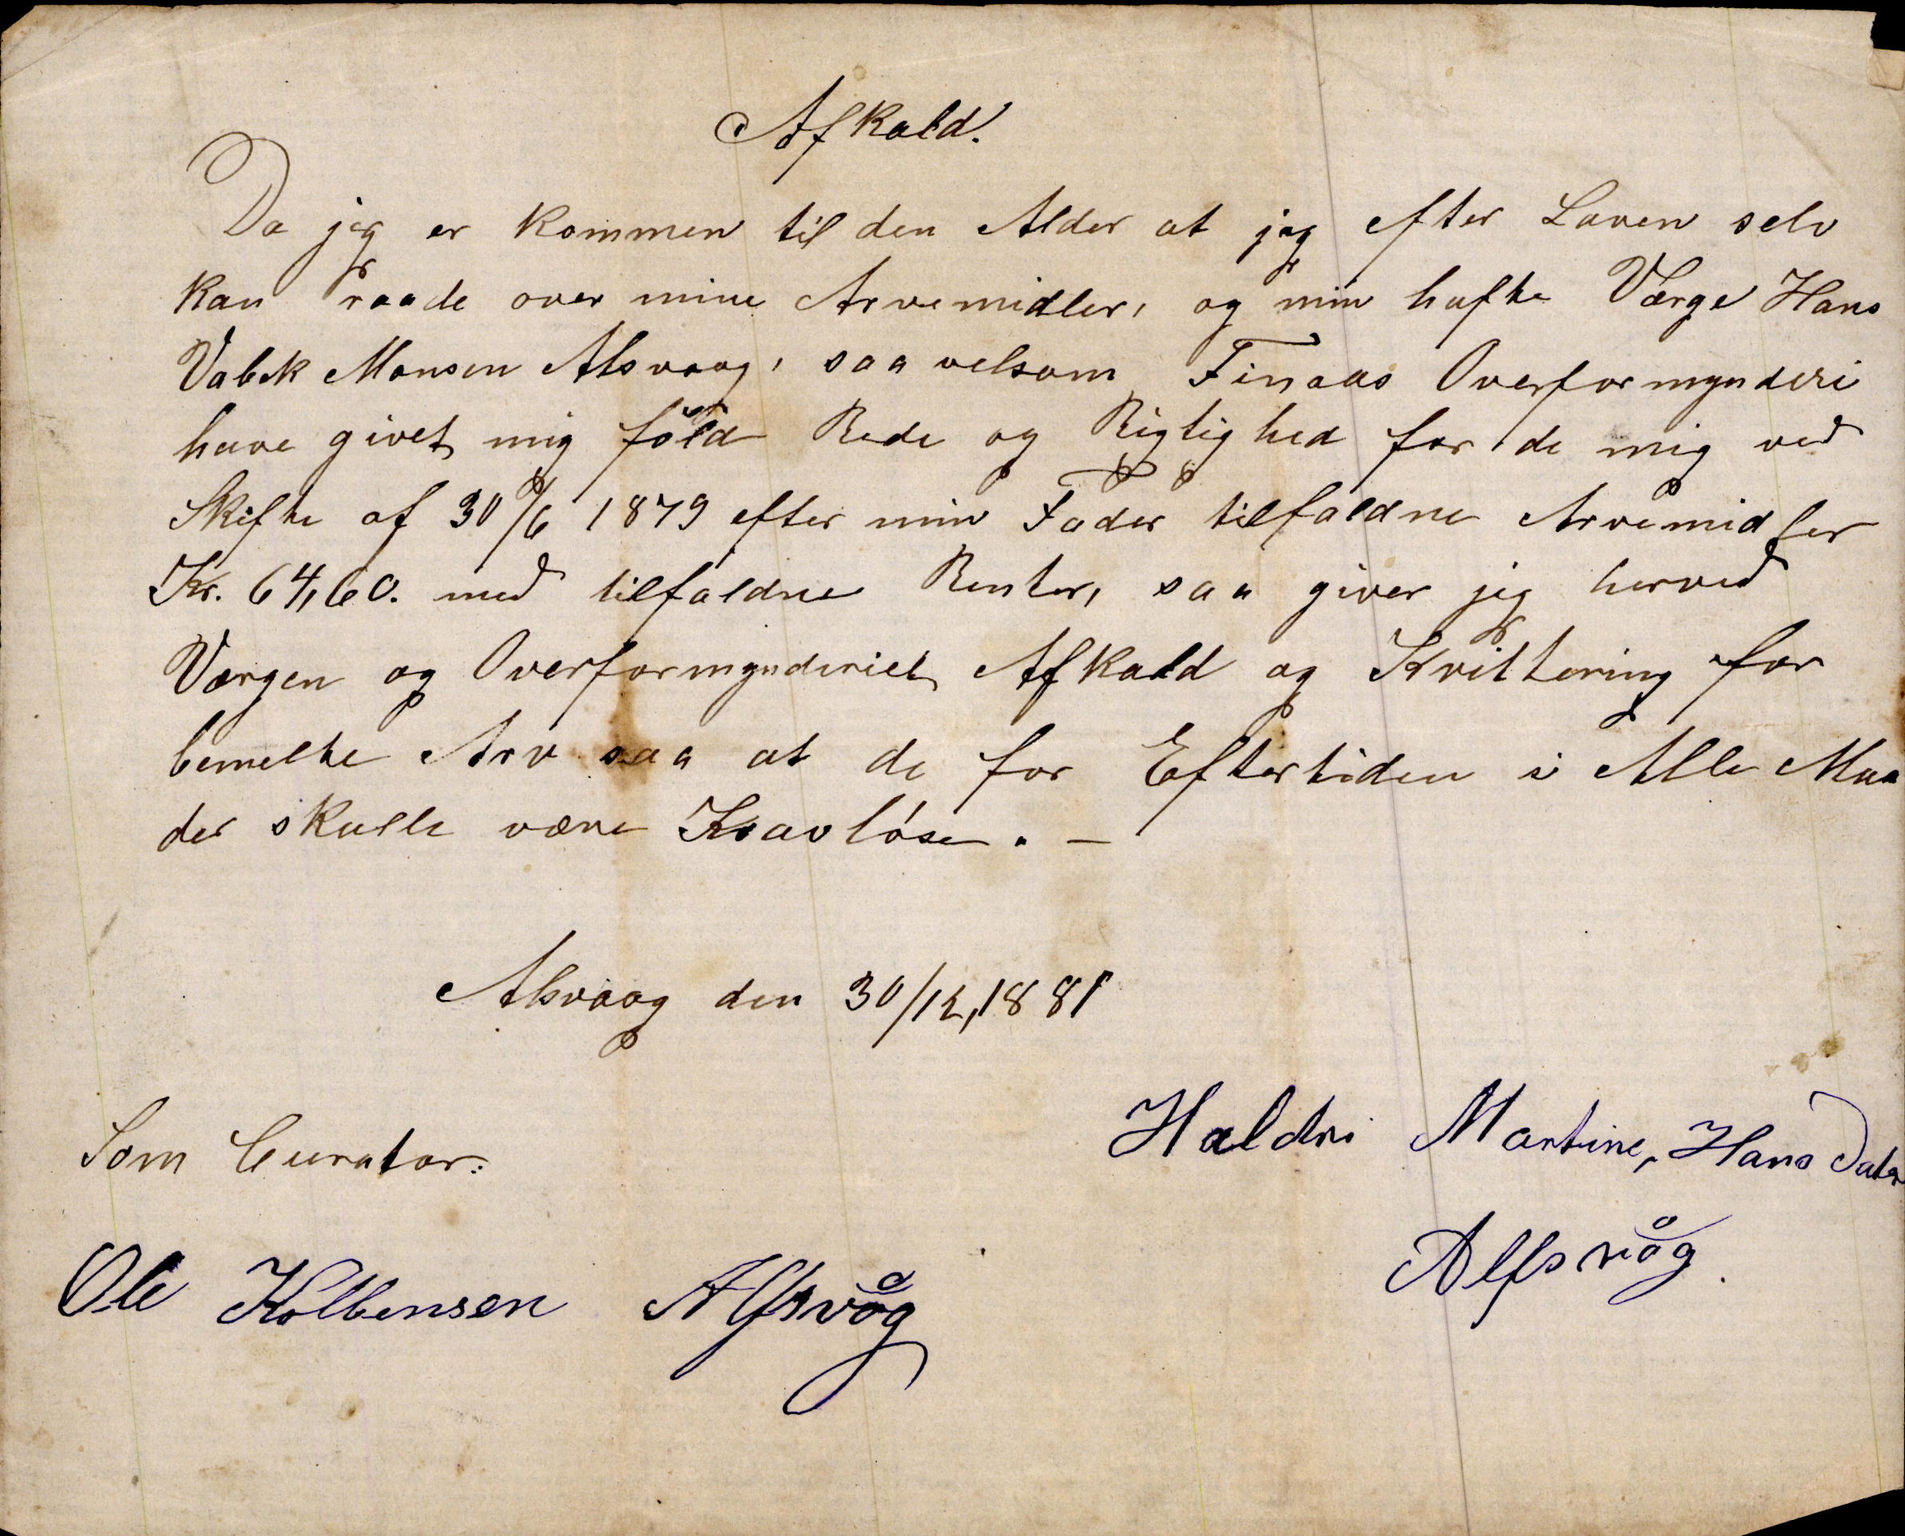 Afkald.
Da jeg er kommen til den Alder at jeg efter Loven selv
kan raade over mine Arvemidler, og min hafte Værge Hans
Vabek Monsen Alsvaag, saavelsom Finaas Overformynderi
have givet mig föld Rede og Rigtighed for de mig ved
Skifte af 30/6 1879 efter min Fader tilfaldne Arvemidler
Kr. 64,60. med tilfaldne Renter, saa giver jeg herved
Værgen og Overformynderiet Afkald og Kvittering for
bemelte Arv saa at de for Eftertiden i Alle Maa
der skulle være Kravløse. —
Alsvaag den 30/12, 1881
Haldri Martine, Hans Dater
Alfsvåg.
Som Curator:
Ole Kolbensen Alfsvåg